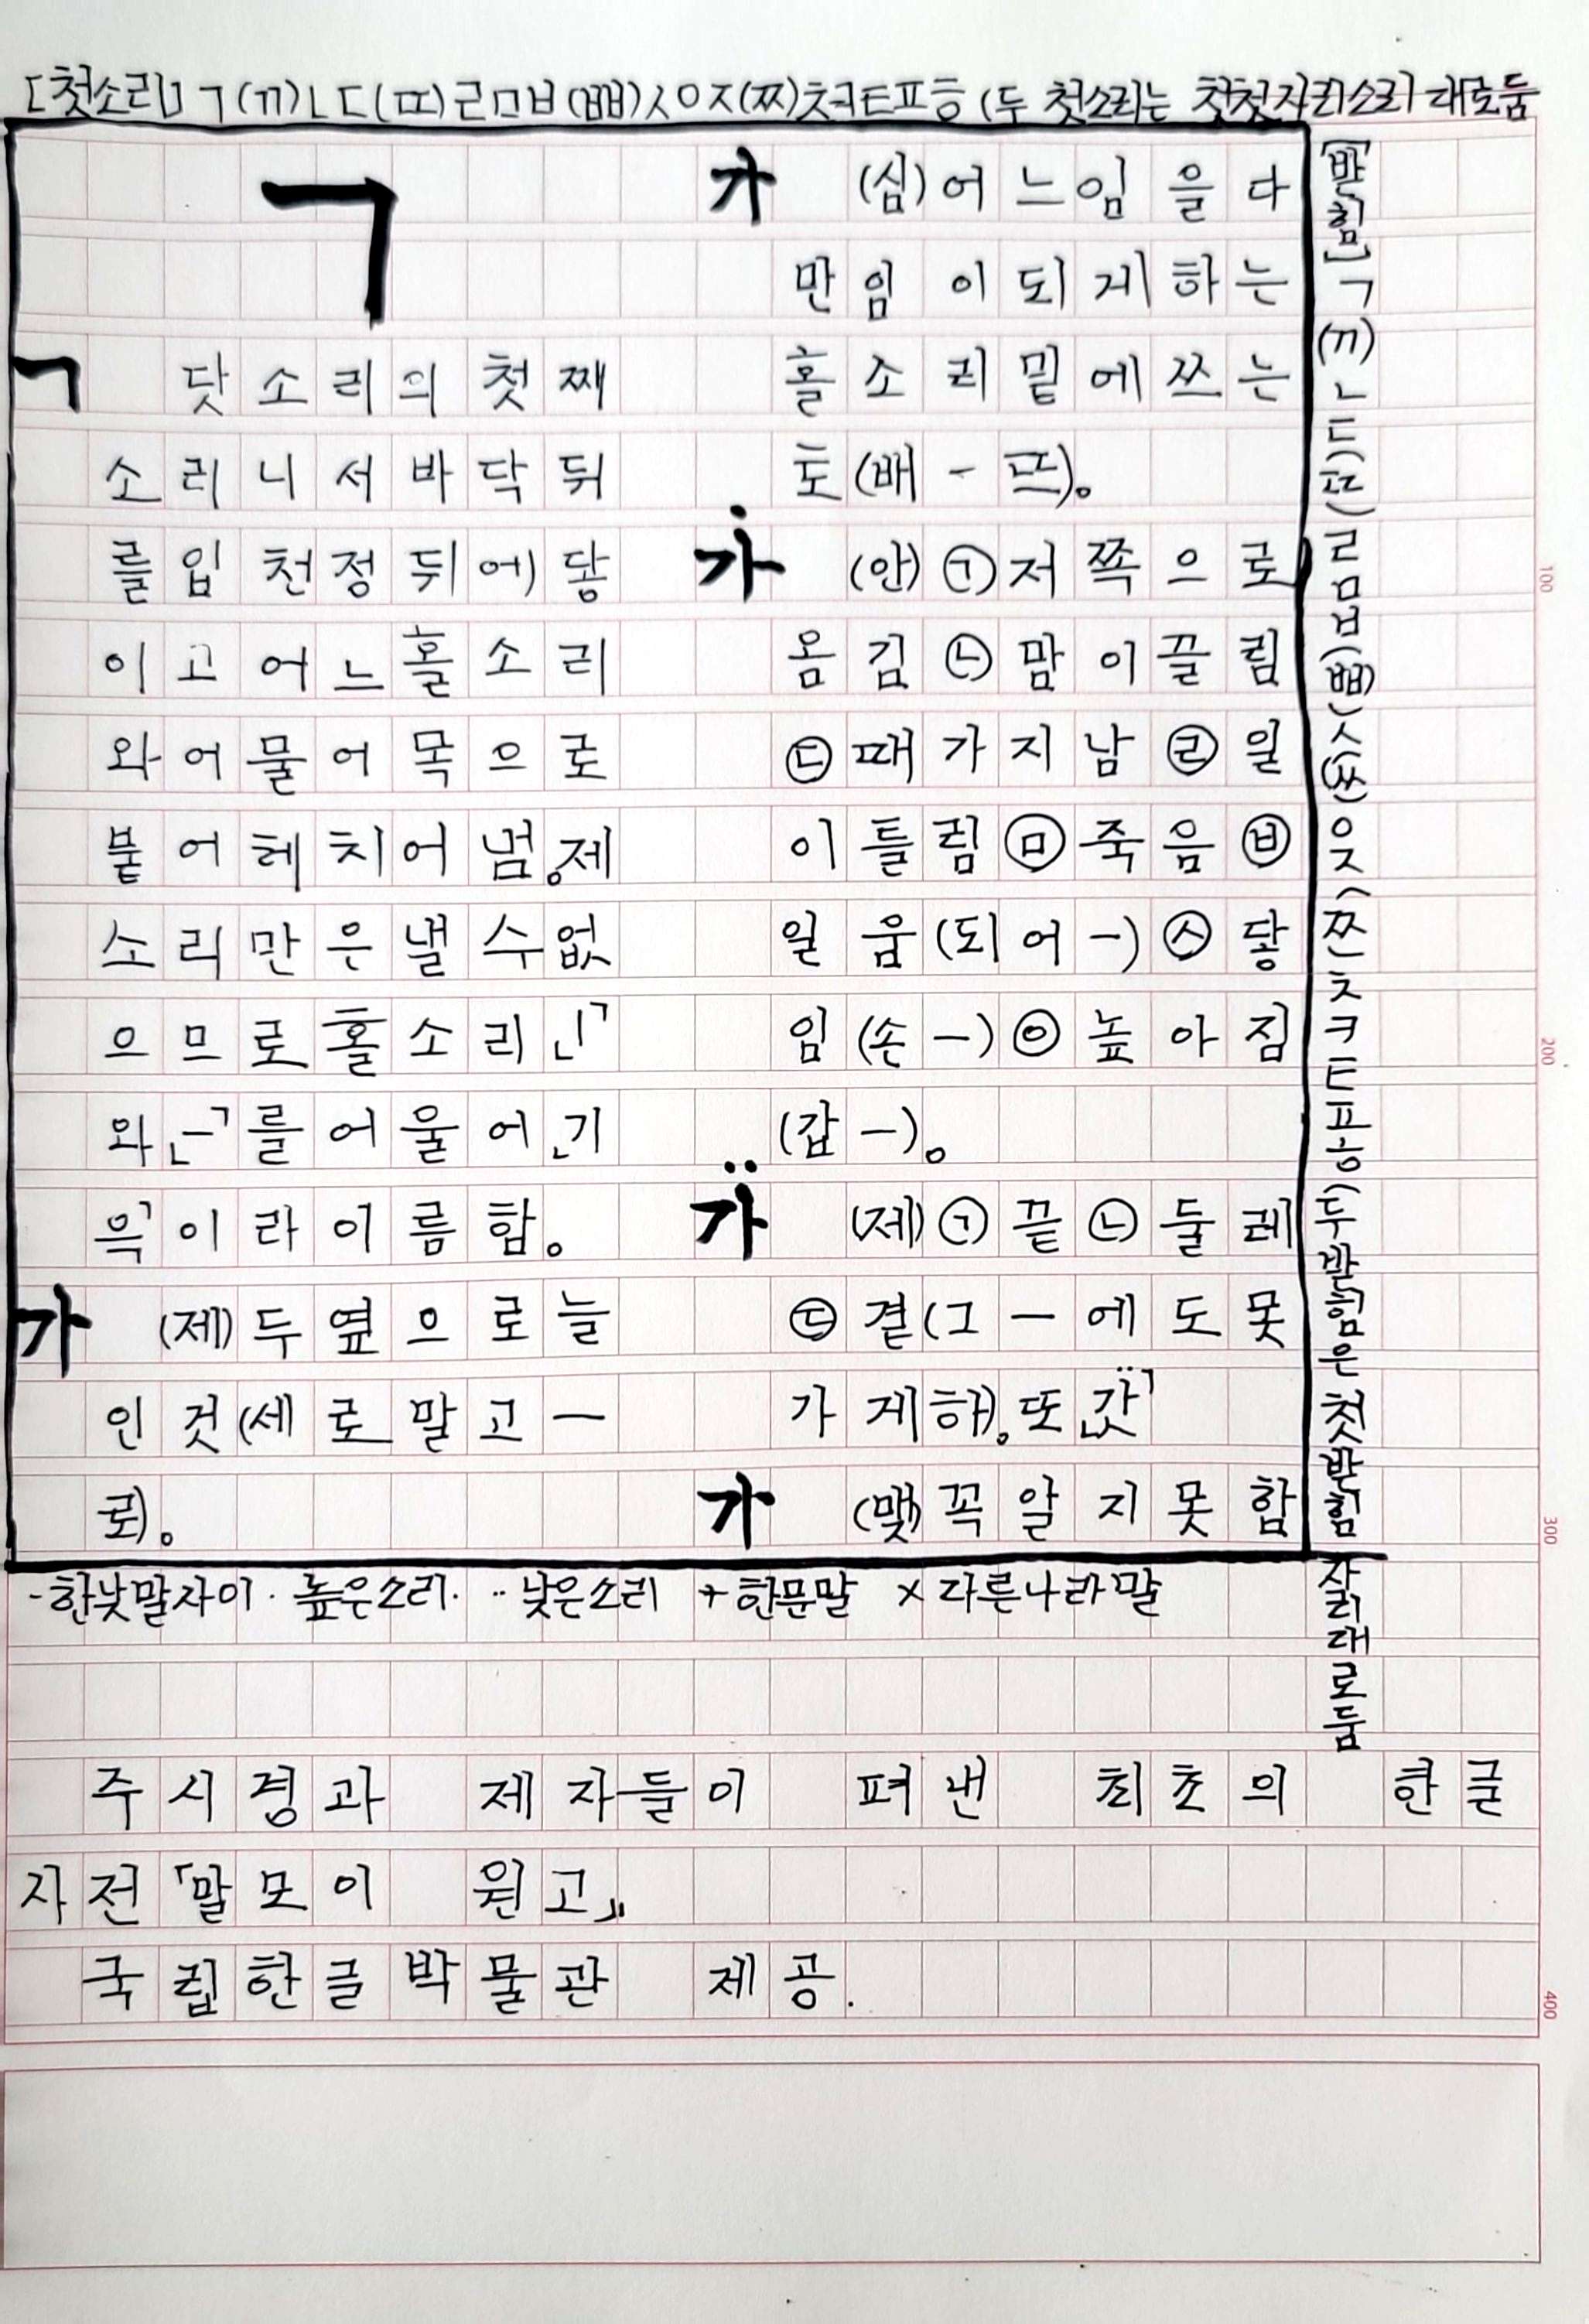 [첫소리] ㄱ(ㄲ)ㄴㄷ(ㄸ)ㄹㅁㅂ(ㅃ)ㅅㅇㅈ(ㅉ)ㅊㅋㅌㅍㅎ(두 첫소리는 첫첫자리소리 대로둠
ㄱ
ㄱ 닷소리의 첫째
소리니서바닥뒤
를입천정뒤에닿
이고어느홀소리
와어물어목으로
붙어헤치어넘。제
소리만은낼수없
으므로홀소리｢ㅣ｣
와｢ㅡ｣를어울어｢기
윽｣이라이름함。
가 (제)두옆으로늘
인것(세로말고ㅡ
로)。
가 (심)어느임을다
만임이되게하는
홀소리밑에쓰는
토(배-뜨)。
·가 (안)㉠저쪽으로
옴김㉡맘이끌림
㉢때가지남㉣일
이틀림㉤죽음㉥
일움(되어ㅡ)㉦닿
임(손ㅡ)㉧높아짐
(값ㅡ)。
··가 (제)㉠끝㉡둘레
㉢곁(그ㅡ에도못
가게해)。또｢··갓｣
가 (맺)꼭알지못함
[받힘]ㄱ(ㄲ)ㄴㄷ(ㄸ)ㄹㅁㅂ(ㅃ)ㅅ(ㅆ)ㅇㅈ(ㅉ)ㅊㅋㅌㅍㅎ(두받힘은첫받힘자리대로둠
-한낮말사이 · 높은소리. ·· 낮은소리 +한문말 ×다른나라말
주시경과 제자들이 펴낸 최초의 한글
사전「말모이 원고」
국립한글박물관 제공.
100
200
300
400